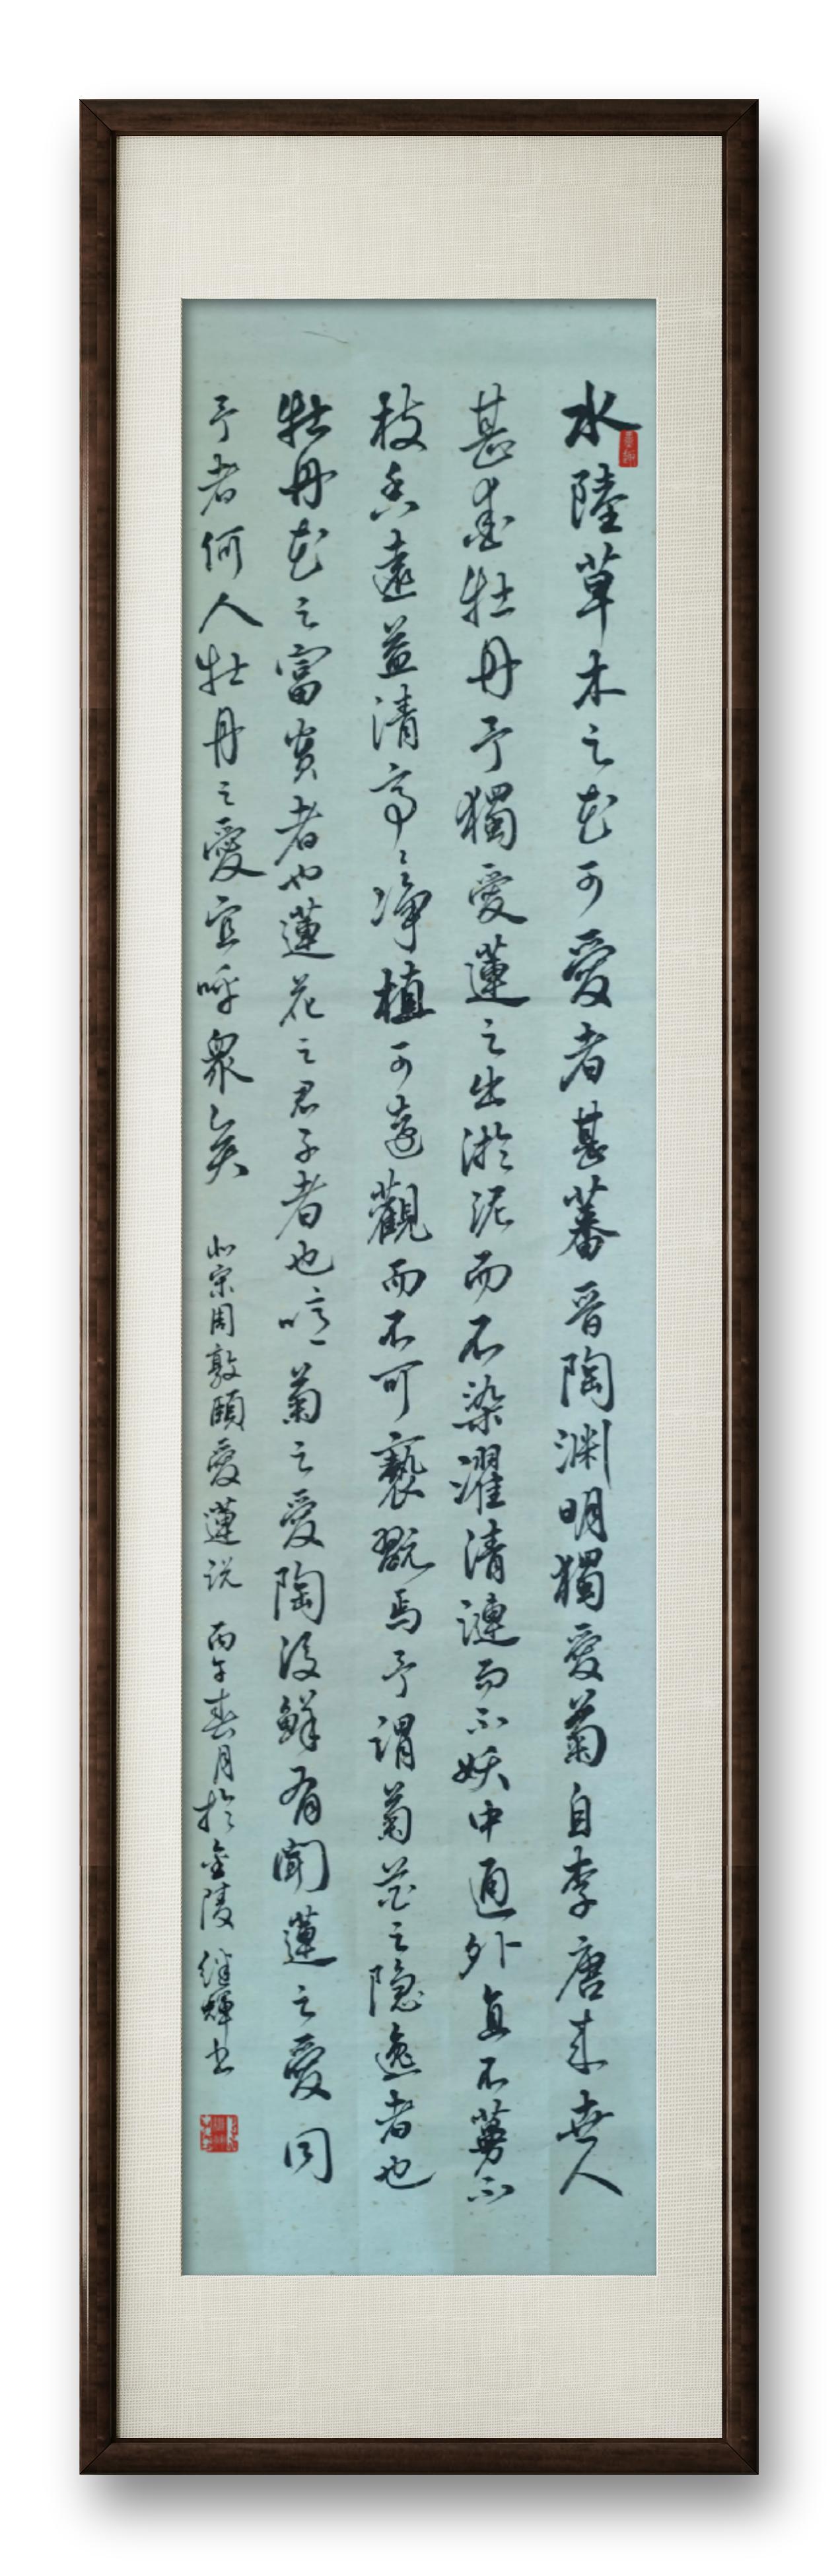 水陸草木之花可愛者甚蕃晋陶渊明獨愛菊自李唐来世人
甚愛牡丹予獨愛蓮之出淤泥而不染濯清漣而不妖中通外直不蔓不
枝香遠益清亭々淨植可遠觀而不可褻翫焉予謂菊花之隐逸者也
牡丹花之富貴者也蓮花之君子者也噫菊之愛陶後鮮有聞蓮之愛同
予者何人牡丹之愛宜呼衆矣 北宋周敦頤愛蓮说 丙午春月於金陵 继輝书